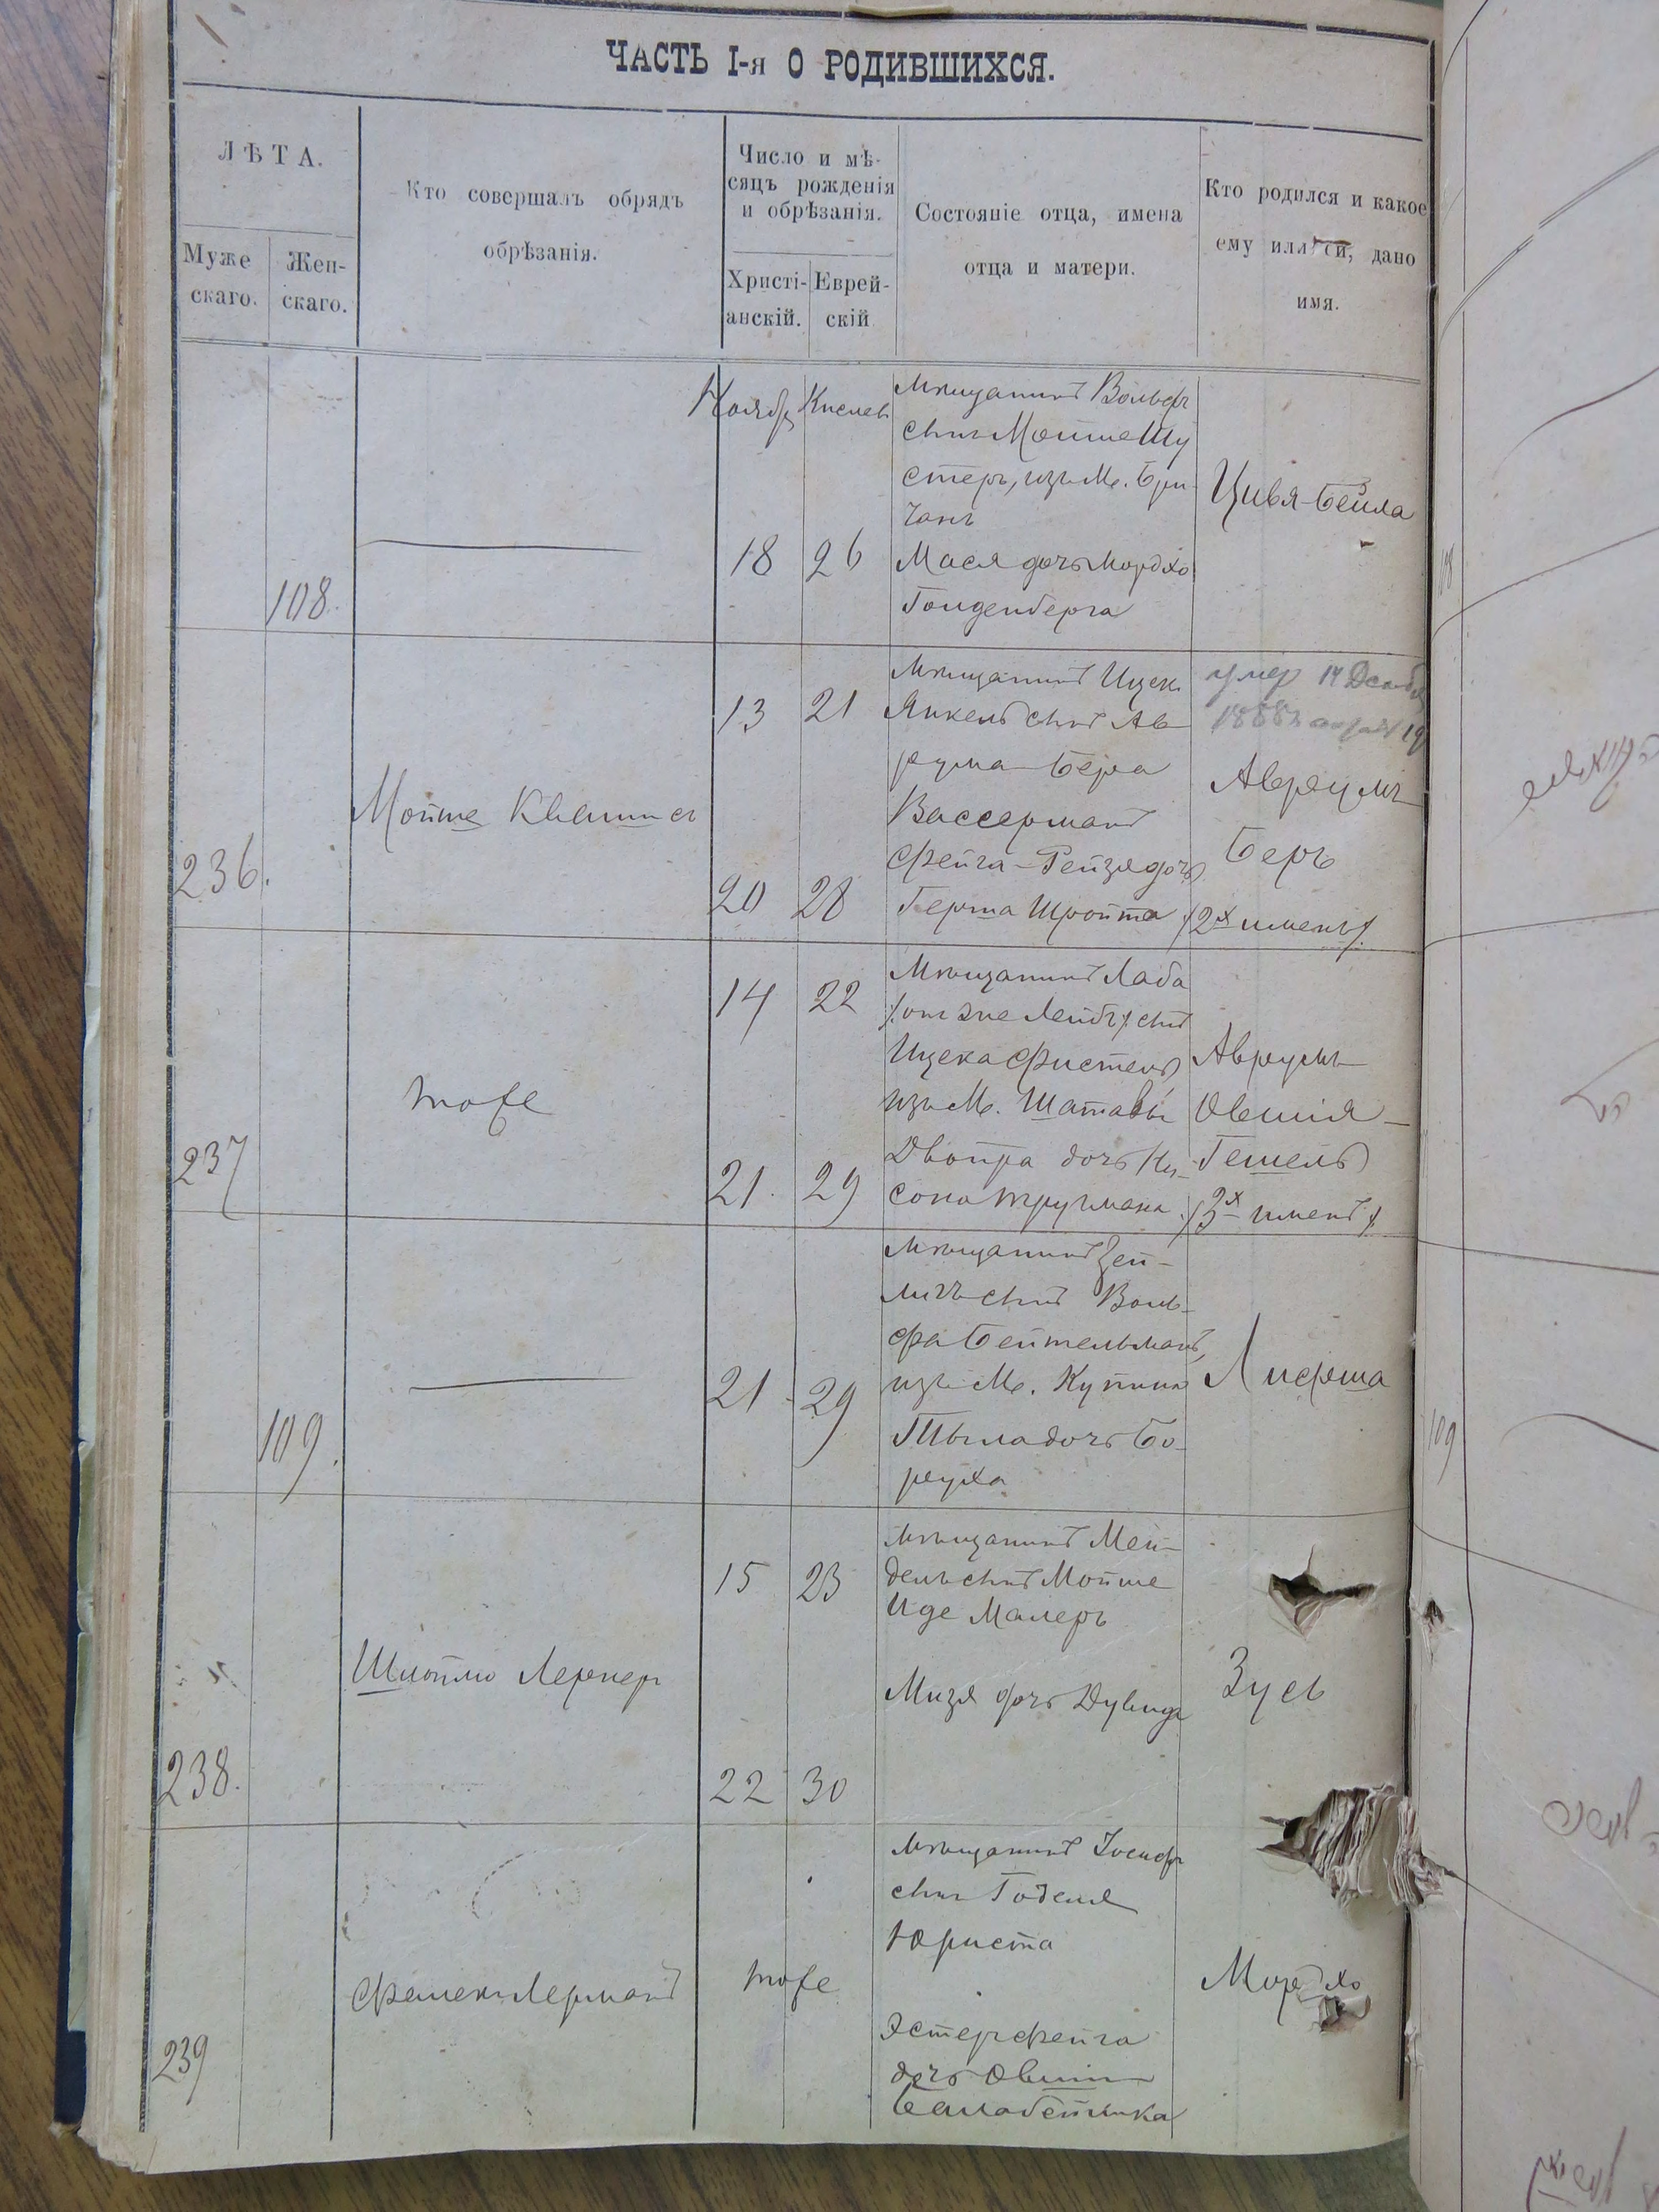 ЧАСТЬ I-я О РОДИВШИХСЯ.
ЛѢТА.
Муже
скаго.
Жен-
скаго.
Кто совершалъ обрядъ
обрѣзанія.
Число и мѣ-
сяцъ рожденія
и обрѣзанія.
Христі-
анскій.
Еврей-
скій
Состояніе отца, имена
отца и матери.
Кто родился и какое
ему или ей, дано
имя.
108.
Ноябр
Кислев
18
26
Мѣщанинъ Вольфъ
сынъ Мойше Шу
стеръ, изъ М. Бри-
чанъ
Мася дочь Мордхо
Голденберга
Цивя-Бейла
236.
Мойше Квашн
13
21
20
28
Мѣщанинъ Ицек
Янкель сынъ Ав-
рума-Бера
Вассерманъ
Фейга-Рейзя дочь
Герша Шройта
умер 14 Декабр
1888
Аврумъ-
Беръ
/2х именъ/.
237
тоже
14
22
21.
29
Мѣщанинъ Лаба
/онъ же Лейбъ/ сынъ
Ицека Фистель
изъ М. Шатавы
Двойра дочь Ну-
сона Тругмана
Аврумъ-
Овшія-
Гешель
/3х именъ/
109.
21
29
Мѣщанинъ Зей-
лигъ сынъ Воль-
фа Бейтельманъ,
изъ М. Купина
Тыла дочь Бо-
руха
Лифша
238.
Шлойме Лернеръ
15
23
22
30
Мѣщанинъ Мен-
дель сынъ Мойше
Иде Малеръ
Мизя дочь Дувида
Зусь
239
Фалекъ Лерманъ
тоже
Мѣщанинъ Іосифъ
сынъ Годеля
Юриста
Эстер Фейга
дочь Овшія
Балабейника
Мордхо
108
109